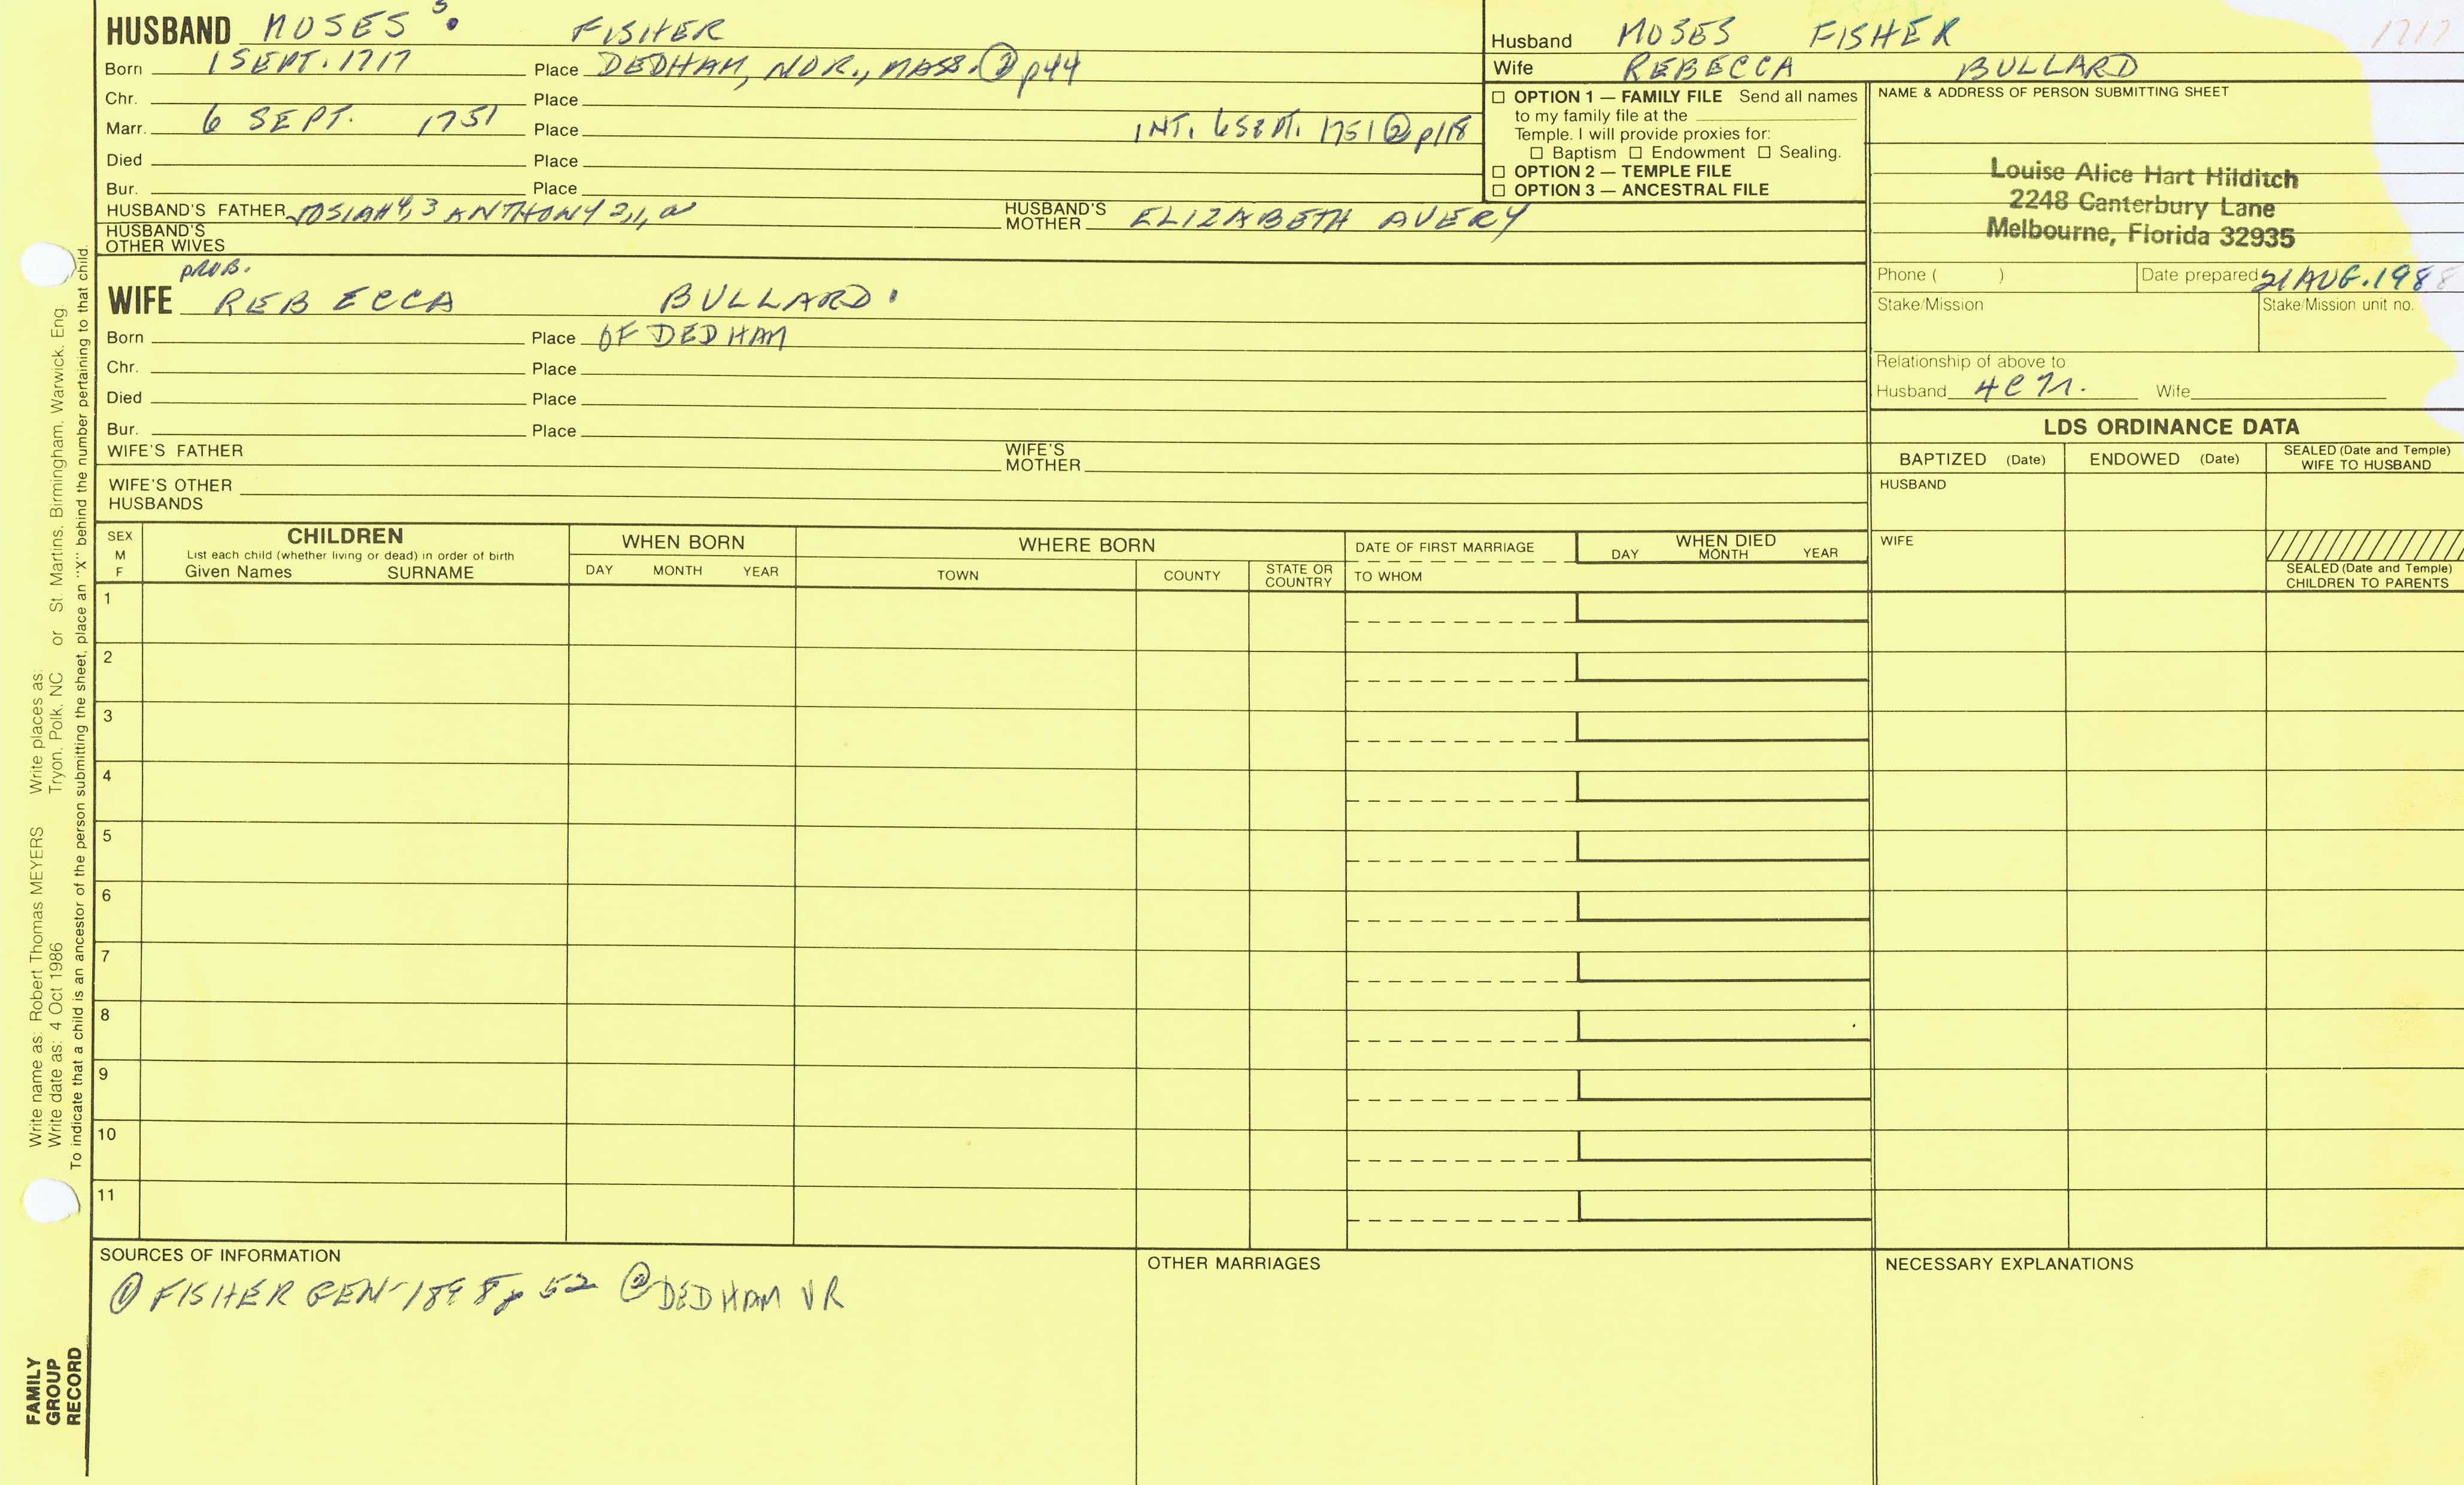 HUSBAND MOSES 5. FISHER
Born 1 SEPT. 1717 Place DEDHAM, NOR., MASS. ② p44
Chr. Place
Marr. 6 SEPT. 1751 Place INT. 6 SEPT. 1751 ② p118
Died Place
Bur. Place
HUSBAND'S FATHER JOSIAH 4, 3 ANTHONY 2, 1, a HUSBAND'S MOTHER ELIZABETH AVERY
HUSBAND'S OTHER WIVES
PROB.
WIFE REBECCA BULLARD
Born Place OF DEDHAM
Chr. Place
Died Place
Bur. Place
WIFE'S FATHER WIFE'S MOTHER
WIFE'S OTHER HUSBANDS
1717
Husband MOSES FISHER
Wife REBECCA BULLARD
☐ OPTION 1 — FAMILY FILE Send all names
to my family file at the
Temple. I will provide proxies for:
☐ Baptism ☐ Endowment ☐ Sealing.
☐ OPTION 2 — TEMPLE FILE
☐ OPTION 3 — ANCESTRAL FILE
NAME & ADDRESS OF PERSON SUBMITTING SHEET
Louise Alice Hart Hilditch
2248 Canterbury Lane
Melbourne, Florida 32935
Phone ( ) Date prepared 21 AUG. 1988
Stake/Mission Stake/Mission unit no.
Relationship of above to
Husband Wife
LDS ORDINANCE DATA
BAPTIZED (Date) ENDOWED (Date) SEALED (Date and Temple) WIFE TO HUSBAND
HUSBAND
WIFE
SEALED (Date and Temple)
CHILDREN TO PARENTS
SEX M F
CHILDREN
List each child (whether living or dead) in order of birth
Given Names SURNAME
WHEN BORN
DAY MONTH YEAR
WHERE BORN
TOWN COUNTY STATE OR COUNTRY
DATE OF FIRST MARRIAGE
TO WHOM
WHEN DIED
DAY MONTH YEAR
1
2
3
4
5
6
7
8
9
10
11
SOURCES OF INFORMATION
① FISHER GEN-1898 p 52 ② DEDHAM VR
OTHER MARRIAGES
NECESSARY EXPLANATIONS
Write name as: Robert Thomas MEYERS Write places as:
Write date as: 4 Oct 1986 Tryon, Polk, NC or St. Martins, Birmingham, Warwick, Eng.
To indicate that a child is an ancestor of the person submitting the sheet, place an "X" behind the number pertaining to that child.
FAMILY
GROUP
RECORD